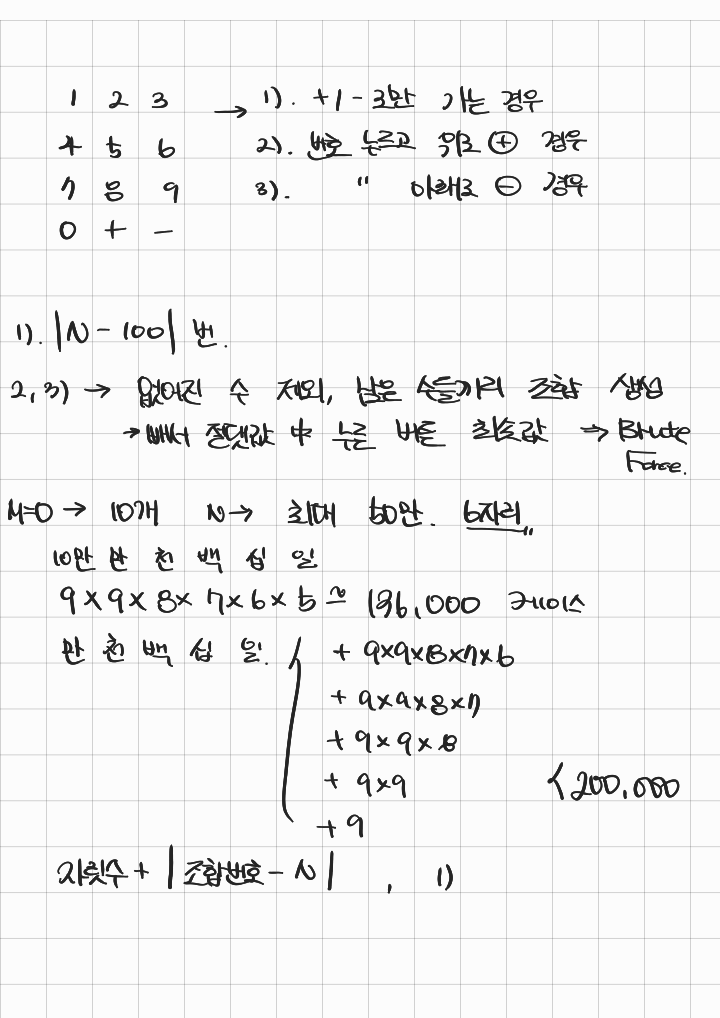 1 2 3 → 1). +1 - 로만 가는 경우
4 5 6 2). 번호 누르고 위로 ⊕ 경우
7 8 9 3). " 아래로 ⊖ 경우
0 + -
1). |N - 100| 번.
2, 3) → 없어진 수 제외, 남은 수들끼리 조합 생성
→ 빼서 절댓값 中 누른 버튼 최솟값 ⇒ Brute
Force.
M=0 → 10개 N → 최대 50만. 6자리 〃
10만 만 천 백 십 일
9 × 9 × 8 × 7 × 6 × 5 ≃ 136,000 케이스
만 천 백 십 일. + 9×9×8×7×6
+ 9×9×8×7
+ 9×9×8
+ 9×9 < 200,000
+ 9
자릿수 + |조합번호 - N| , 1)